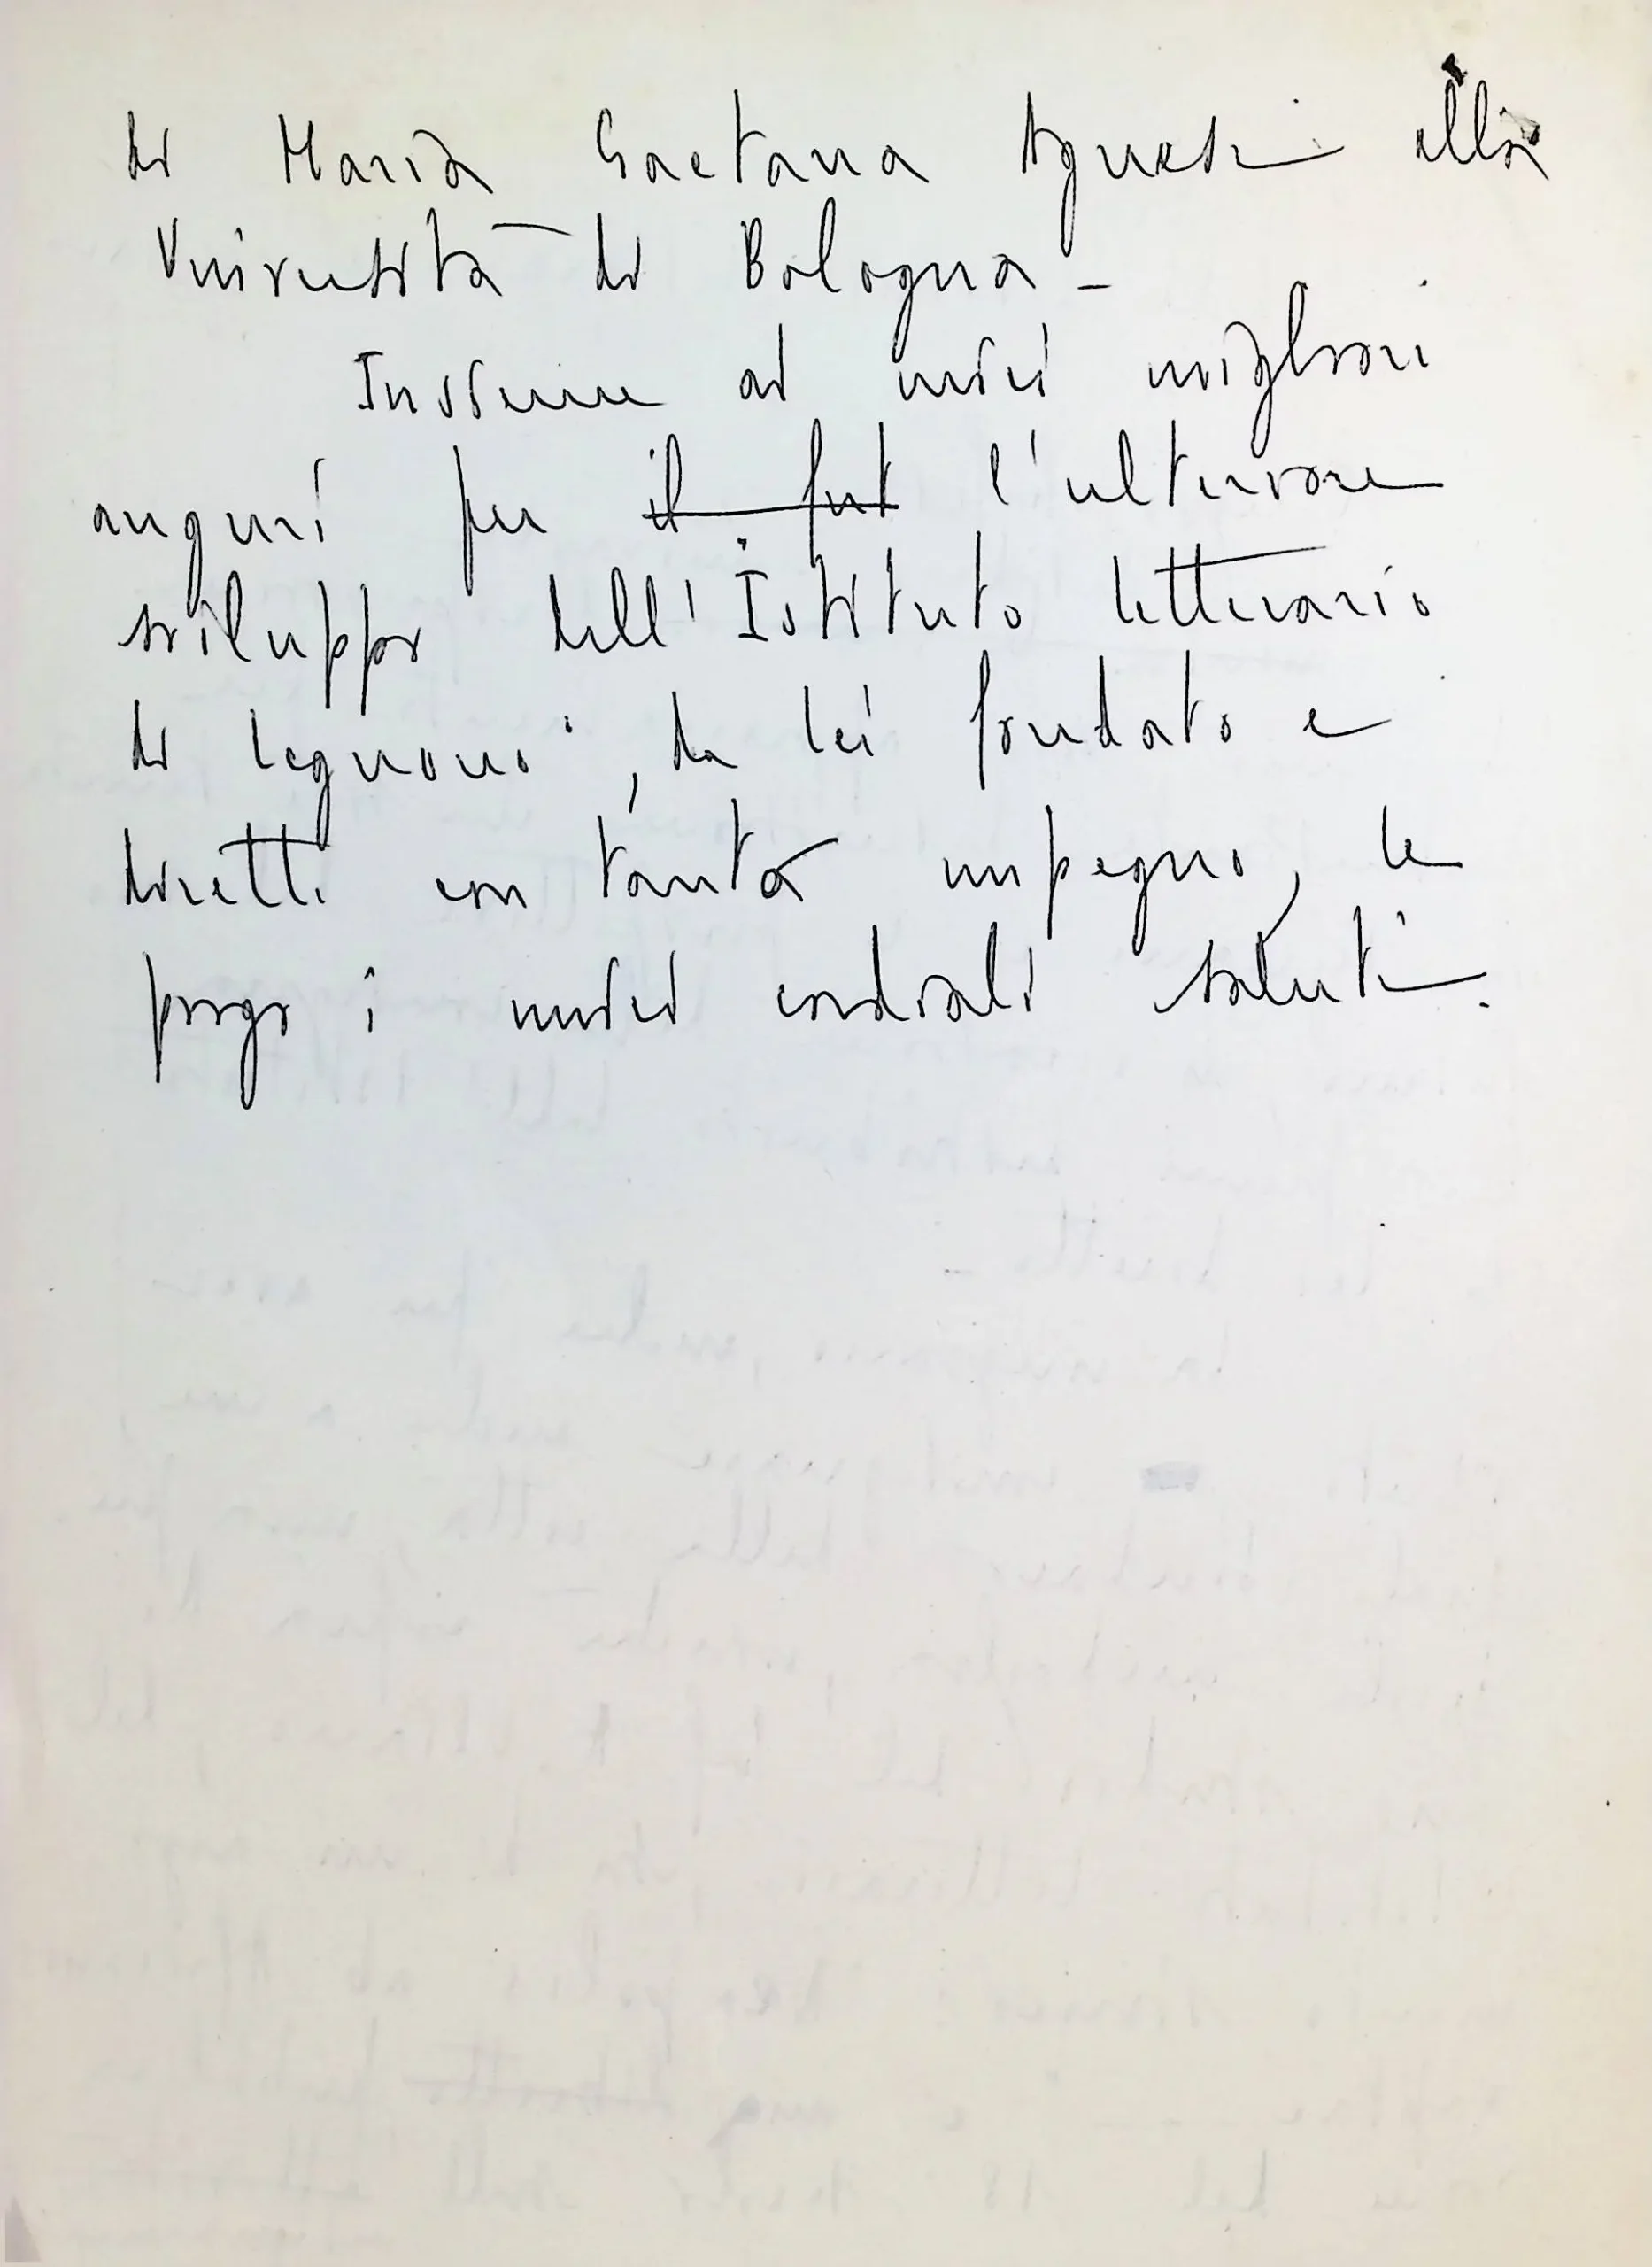 di Maria Gaetana Agnesi alla
Università di Bologna -
Insieme ai miei migliori
auguri per il fut l'ulteriore
sviluppo dell'Istituto letterario
di , da lei fondato e
diretto con tanto impegno, le
porgo i miei cordiali saluti.